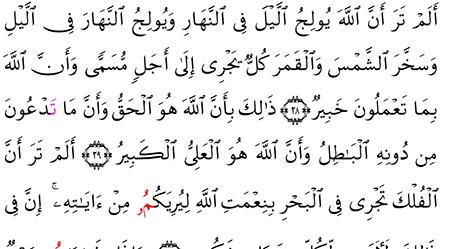 أَلَمْ تَرَ أَنَّ ٱللَّهَ يُولِجُ ٱلَّيْلَ فِى ٱلنَّهَارِ وَيُولِجُ ٱلنَّهَارَ فِى ٱلَّيْلِ
وَسَخَّرَ ٱلشَّمْسَ وَٱلْقَمَرَ كُلٌّ يَجْرِىٓ إِلَىٰٓ أَجَلٍ مُّسَمًّى وَأَنَّ ٱللَّهَ
بِمَا تَعْمَلُونَ خَبِيرٌ ٢٨ ذَٰلِكَ بِأَنَّ ٱللَّهَ هُوَ ٱلْحَقُّ وَأَنَّ مَا تَدْعُونَ
مِن دُونِهِ ٱلْبَٰطِلُ وَأَنَّ ٱللَّهَ هُوَ ٱلْعَلِىُّ ٱلْكَبِيرُ ٢٩ أَلَمْ تَرَ أَنَّ
ٱلْفُلْكَ تَجْرِى فِى ٱلْبَحْرِ بِنِعْمَتِ ٱللَّهِ لِيُرِيَكُمُۥ مِنْ ءَايَٰتِهِۦٓ ۚ إِنَّ فِى